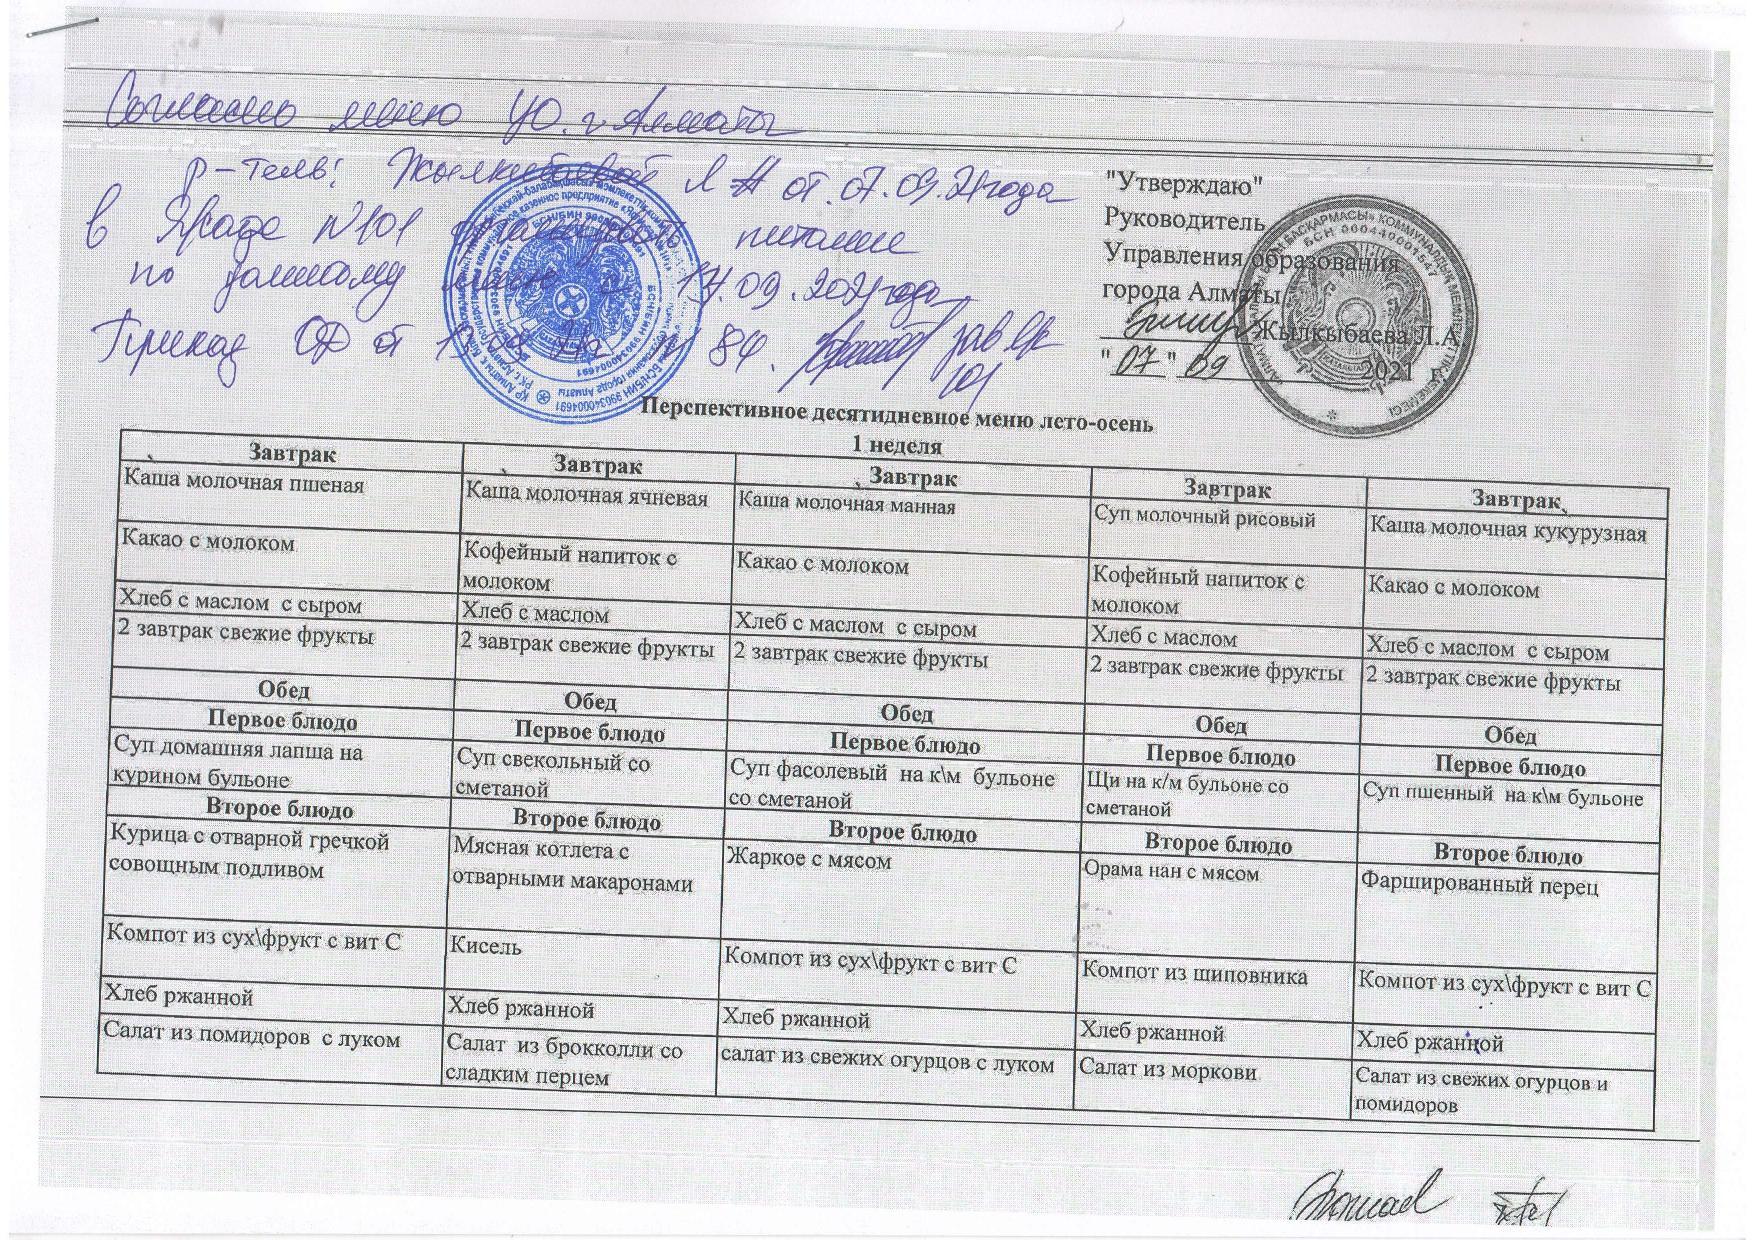 Согласно меню УО. г Алматы
р-тель: Жылкыбаевой Л А от. 07.09.21года
в Ясаде №101 питание
по данному меню с 14.09.2021года
Приказ ОД от 13.09 84. зав
101
"Утверждаю"
Руководитель
Управления образования
города Алматы
Жылкыбаева Л.А
"07" 09 2021 г
Перспективное десятидневное меню лето-осень
1 неделя
Завтрак Завтрак Завтрак Завтрак Завтрак
Каша молочная пшеная Каша молочная ячневая Каша молочная манная Суп молочный рисовый Каша молочная кукурузная
Какао с молоком Кофейный напиток с Какао с молоком Кофейный напиток с Какао с молоком
молоком молоком
Хлеб с маслом с сыром Хлеб с маслом Хлеб с маслом с сыром Хлеб с маслом Хлеб с маслом с сыром
2 завтрак свежие фрукты 2 завтрак свежие фрукты 2 завтрак свежие фрукты 2 завтрак свежие фрукты 2 завтрак свежие фрукты
Обед Обед Обед Обед Обед
Первое блюдо Первое блюдо Первое блюдо Первое блюдо Первое блюдо
Суп домашняя лапша на Суп свекольный со Суп фасолевый на к\м бульоне Щи на к/м бульоне со Суп пшенный на к\м бульоне
курином бульоне сметаной со сметаной сметаной
Второе блюдо Второе блюдо Второе блюдо Второе блюдо Второе блюдо
Курица с отварной гречкой Мясная котлета с Жаркое с мясом Орама нан с мясом Фаршированный перец
совощным подливом отварными макаронами
Компот из сух\фрукт с вит С Кисель Компот из сух\фрукт с вит С Компот из шиповника Компот из сух\фрукт с вит С
Хлеб ржанной Хлеб ржанной Хлеб ржанной Хлеб ржанной Хлеб ржанной
Салат из помидоров с луком Салат из брокколли со салат из свежих огурцов с луком Салат из моркови Салат из свежих огурцов и
сладким перцем помидоров